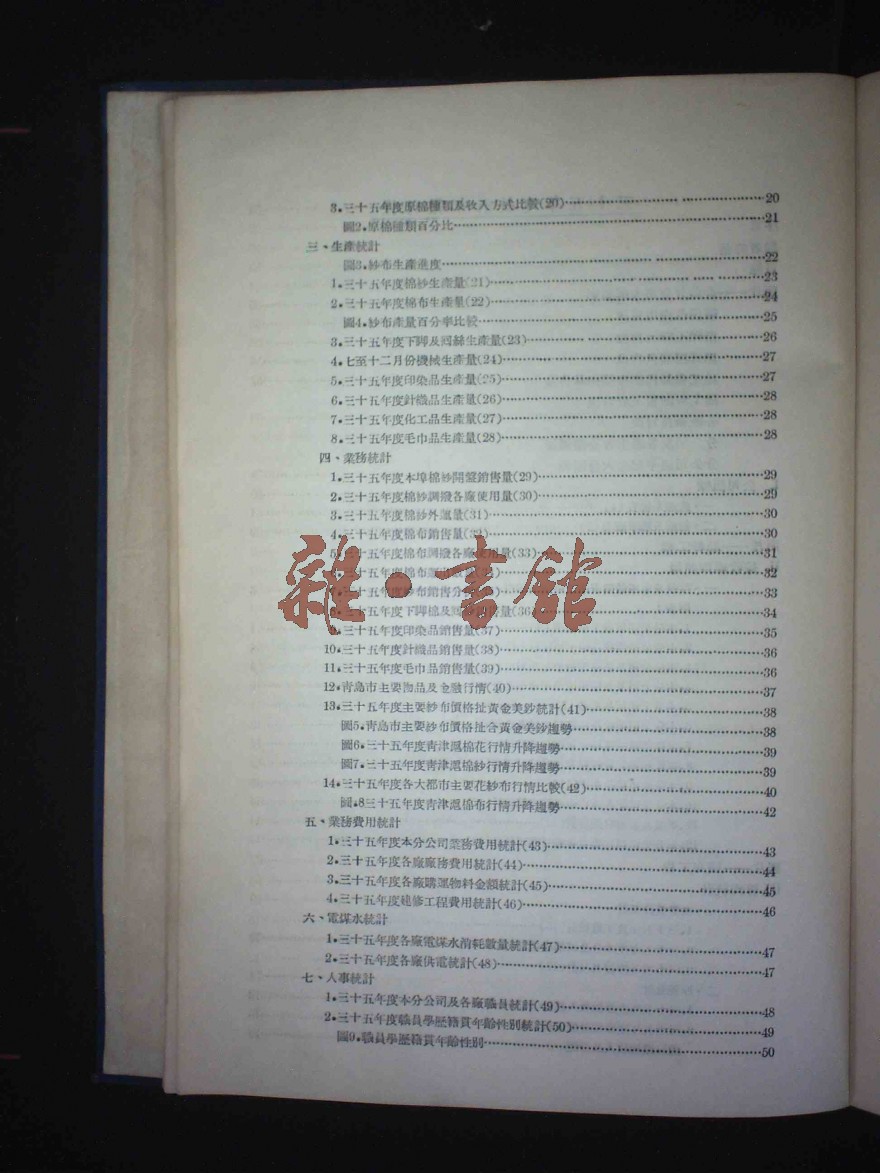 3.三十五年度原棉種類及收入方式比較(20)……20
圖2.原棉種類百分比……21
三、生產統計
圖3.紗布生產進度……22
1.三十五年度棉紗生產量(21)……23
2.三十五年度棉布生產量(22)……24
圖4.紗布產量百分率比較……25
3.三十五年度下脚及回絲生產量(23)……26
4.七至十二月份機械生產量(24)……27
5.三十五年度印染品生產量(25)……27
6.三十五年度針織品生產量(26)……28
7.三十五年度化工品生產量(27)……28
8.三十五年度毛巾品生產量(28)……28
四、業務統計
1.三十五年度本埠棉紗開盤銷售量(29)……29
2.三十五年度棉紗調撥各廠使用量(30)……29
3.三十五年度棉紗外運量(31)……30
4.三十五年度棉布銷售量(32)……30
5.三十五年度棉布調撥各廠使用量(33)……31
三十五年度棉布……32
三十五年度紗布銷售分……33
三十五年度下脚棉及回絲銷售量(36)……34
9.三十五年度印染品銷售量(37)……35
10.三十五年度針織品銷售量(38)……36
11.三十五年度毛巾品銷售量(39)……36
12.靑島市主要物品及金融行情(40)……37
13.三十五年度主要紗布價格扯黃金美鈔統計(41)……38
圖5.靑島市主要紗布價格扯合黃金美鈔趨勢……38
圖6.三十五年度靑津滬棉花行情升降趨勢……39
圖7.三十五年度靑津滬棉紗行情升降趨勢……39
14.三十五年度各大都市主要花紗布行情比較(42)……40
圖.8三十五年度靑津滬棉布行情升降趨勢……42
五、業務費用統計
1.三十五年度本分公司業務費用統計(43)……43
2.三十五年度各廠廠務費用統計(44)……44
3.三十五年度各廠購運物料金額統計(45)……45
4.三十五年度建修工程費用統計(46)……46
六、電煤水統計
1.三十五年度各廠電煤水消耗數量統計(47)……47
2.三十五年度各廠供電統計(48)……47
七、人事統計
1.三十五年度本分公司及各廠職員統計(49)……48
2.三十五年度職員學歷籍貫年齡性別統計(50)……49
圖9.職員學歷籍貫年齡性別……50
雜·書館